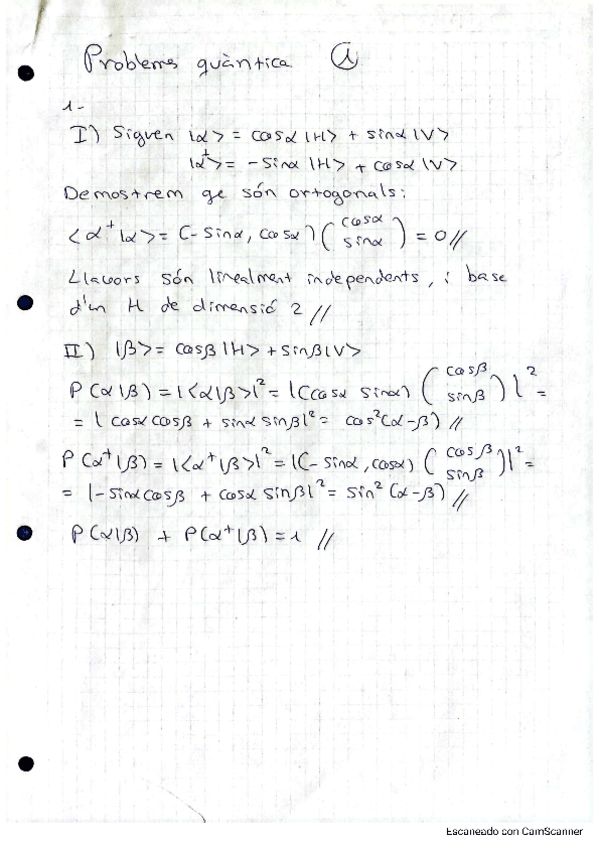 Problemes quàntica 1
1-
I) Siguen |α> = cosα |H> + sinα |V>
|α⁺> = -sinα |H> + cosα |V>
Demostrem qe són ortogonals:
<α⁺|α> = (-sinα, cosα) (cosα sinα) = 0 //
Llavors són linealment independents, i base
d'un H de dimensió 2 //
II) |β> = cosβ |H> + sinβ |V>
P(α|β) = |<α|β>|² = |(cosα sinα) (cosβ sinβ)|² =
= |cosα cosβ + sinα sinβ|² = cos²(α-β) //
P(α⁺|β) = |<α⁺|β>|² = |(-sinα, cosα) (cosβ sinβ)|² =
= |-sinα cosβ + cosα sinβ|² = sin²(α-β) //
P(α|β) + P(α⁺|β) = 1 //
Escaneado con CamScanner